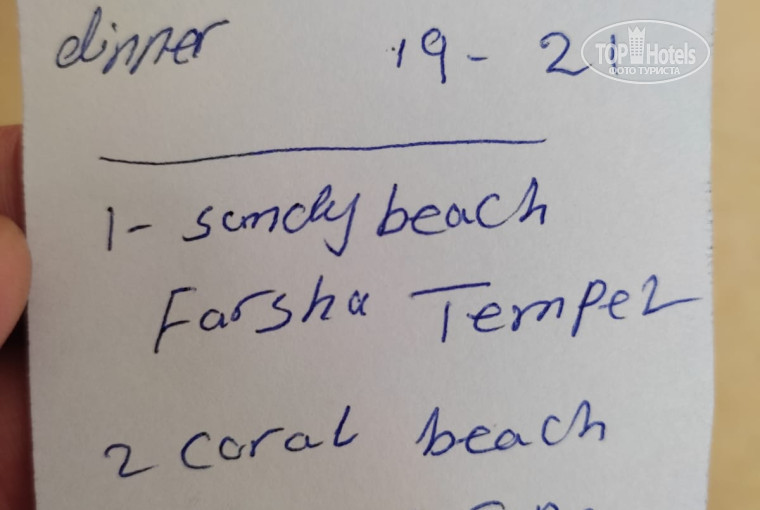 dinner 19 - 21
TOP Hotels
ФОТО ТУРИСТА
1- sandy beach
Farsha Tempel
2 coral beach